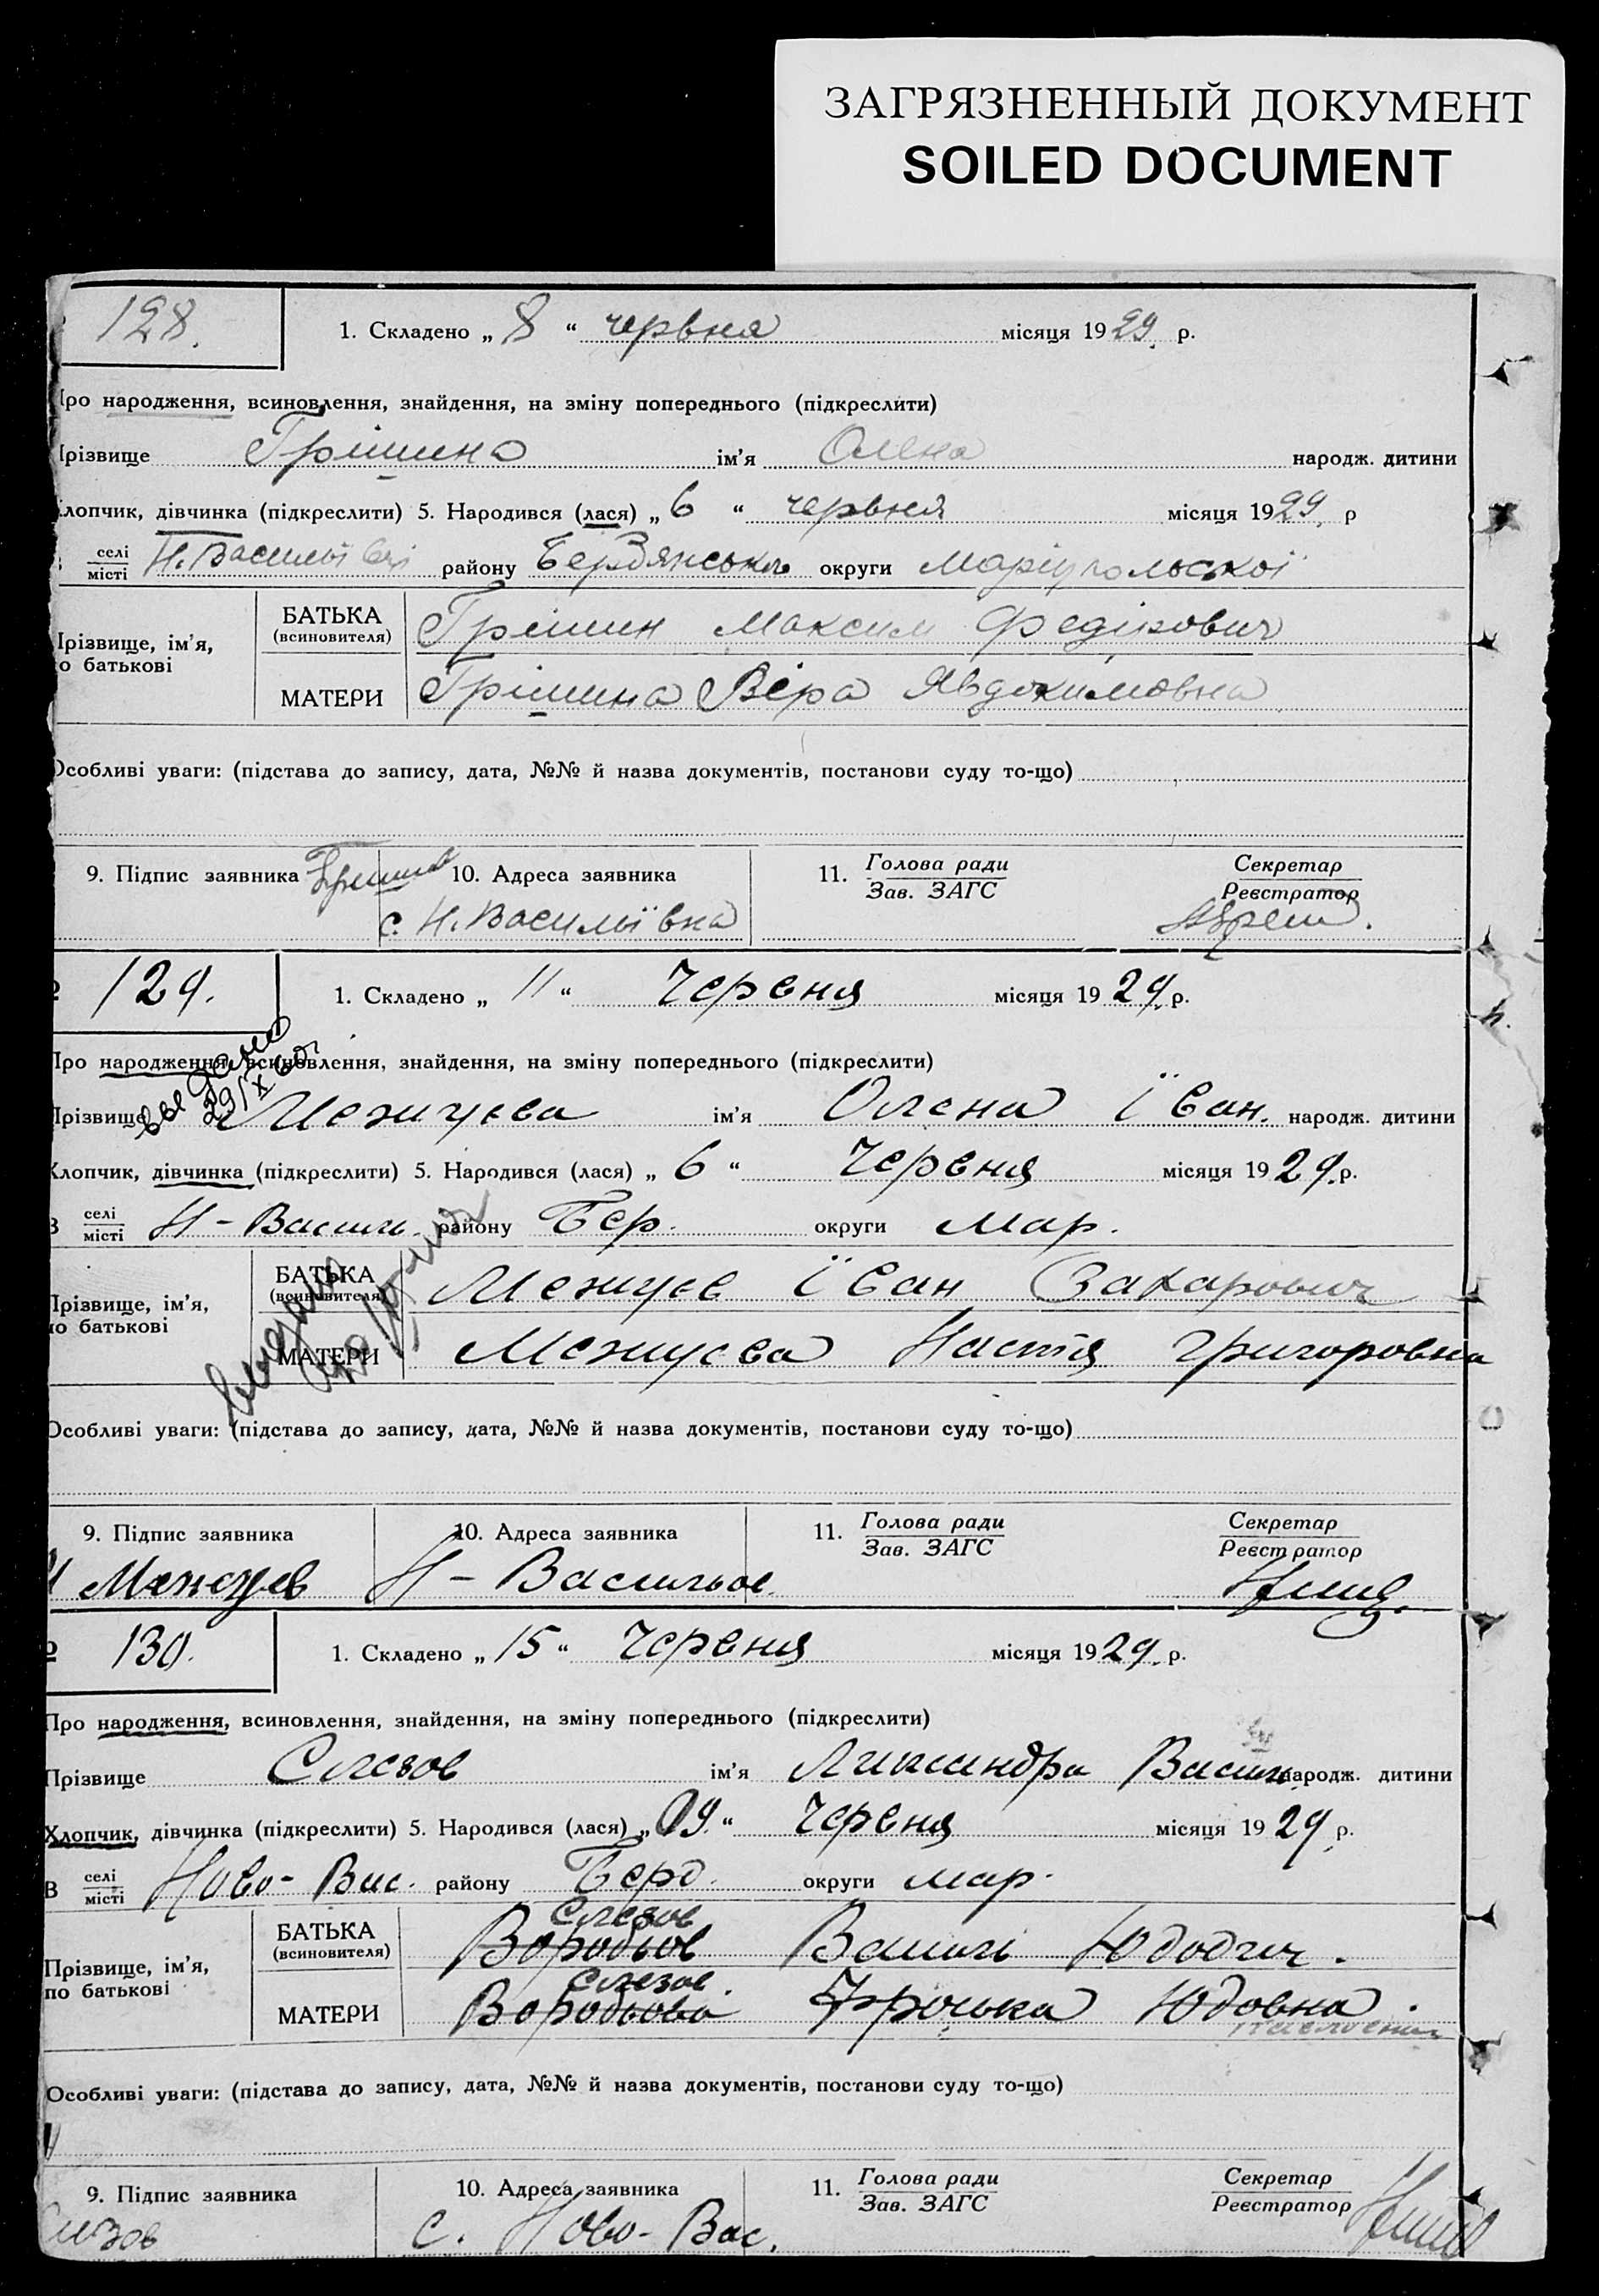 ЗАГРЯЗНЕННЫЙ ДОКУМЕНТ
SOILED DOCUMENT
128. 1. Складено „ 8 “ червня місяця 1929. р.
ро народження, всиновлення, знайдення, на зміну попереднього (підкреслити)
різвище Грішина ім’я Олена народж. дитини
лопчик, дівчинка (підкреслити) 5. Народився (лася) „ 6 “ червня місяця 1929. р
селі
місті Н. Василиївці району Бердянського округи Маріупольської
Прізвище, ім’я,
о батькові
БАТЬКА
(всиновителя) Грішин Максим Федірович
МАТЕРИ Грішина Віра Явдокимовна
Особливі уваги: (підстава до запису, дата, №№ й назва документів, постанови суду то-що)
9. Підпис заявника Грішин 10. Адреса заявника 11. Голова ради Секретар
Зав. ЗАГС Реєстратор
с. Н. Василиївка
129. 1. Складено „ 11 “ Червня місяця 1929. р.
Про народження, всиновлення, знайдення, на зміну попереднього (підкреслити)
29/X 60г.
Прізвище Межуєва ім’я Олена Їван. народж. дитини
Хлопчик, дівчинка (підкреслити) 5. Народився (лася) „ 6 “ Червня місяця 1929. р.
В селі
місті Н-Василь. району Бер. округи Мар.
Прізвище, ім’я,
по батькові
БАТЬКА
(всиновителя) Межуєв Їван Захарович
МАТЕРИ Межуєва Настя Григоровна
Особливі уваги: (підстава до запису, дата, №№ й назва документів, постанови суду то-що)
9. Підпис заявника 10. Адреса заявника 11. Голова ради Секретар
Зав. ЗАГС Реєстратор
Межуев Н-Васильов.
130. 1. Складено „ 15 “ Червня місяця 1929. р.
Про народження, всиновлення, знайдення, на зміну попереднього (підкреслити)
Прізвище Слєзов ім’я Ликсандра Васил. народж. дитини
Хлопчик, дівчинка (підкреслити) 5. Народився (лася) „ 09. “ Червня місяця 1929. р.
В селі
місті Ново-Вас. району Берд. округи Мар.
Прізвище, ім’я,
по батькові
Слєзов
БАТЬКА
(всиновителя) Воробьов Василь Юдович.
Слезов.
МАТЕРИ Воробьова Фроська Юдовна.
Особливі уваги: (підстава до запису, дата, №№ й назва документів, постанови суду то-що)
9. Підпис заявника 10. Адреса заявника 11. Голова ради Секретар
Зав. ЗАГС Реєстратор
с. Ново-Вас.